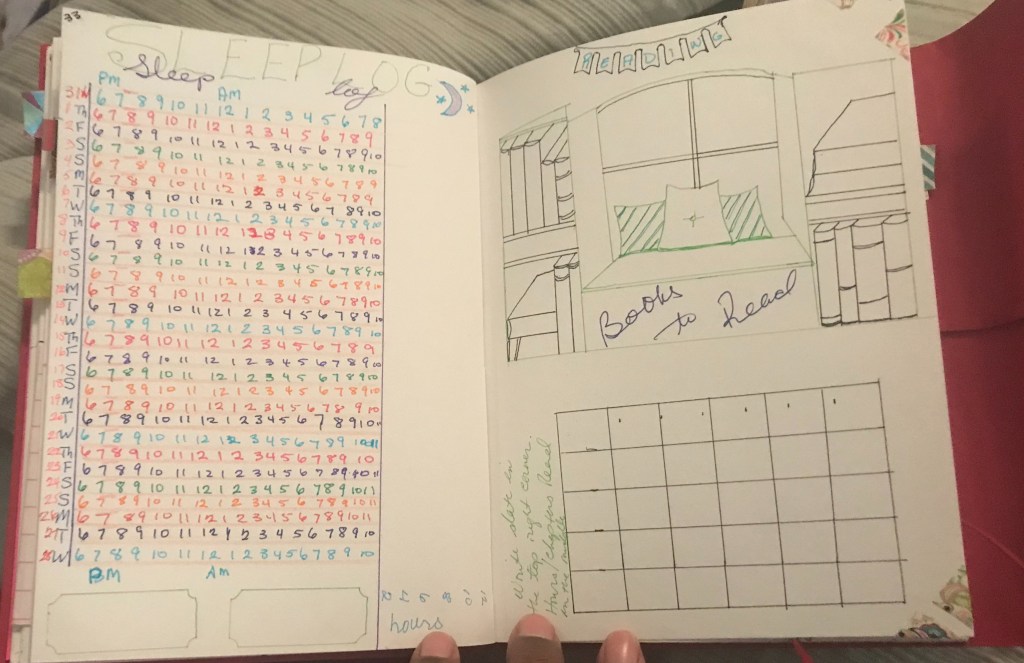 33
SLEEP LOG
Sleep log
PM AM
31 W 6 7 8 9 10 11 12 1 2 3 4 5 6 7 8
1 Th 6 7 8 9 10 11 12 1 2 3 4 5 6 7 8 9
2 F 6 7 8 9 10 11 12 1 2 3 4 5 6 7 8 9 10
3 S 6 7 8 9 10 11 12 1 2 3 4 5 6 7 8 9 10
4 S 6 7 8 9 10 11 12 1 2 3 4 5 6 7 8 9
5 M 6 7 8 9 10 11 12 1 2 3 4 5 6 7 8 9
6 T 6 7 8 9 10 11 12 1 2 3 4 5 6 7 8 9 10
7 W 6 7 8 9 10 11 12 1 2 3 4 5 6 7 8 9 10
8 Th 6 7 8 9 10 11 12 3 4 5 6 7 8 9 10
9 F 6 7 8 9 10 11 12 3 4 5 6 7 8 9 10
10 S 6 7 8 9 10 11 12 1 2 3 4 5 6 7 8 9 10
11 S 6 7 8 9 10 11 12 1 2 3 4 5 6 7 8 9 10
M 6 7 8 9 10 11 12 1 2 3 4 5 6 7 8 9 10
T 6 7 8 9 10 11 12 1 2 3 4 5 6 7 8 9 10
14 W 6 7 8 9 10 11 12 1 2 3 4 5 6 7 8 9 10
15 Th 6 7 8 9 10 11 12 1 2 3 4 5 6 7 8 9
16 F 6 7 8 9 10 11 12 1 2 3 4 5 6 7 8 9 10
17 S 6 7 8 9 10 11 12 1 2 3 4 5 6 7 8 9 10
18 S 6 7 8 9 10 11 12 1 2 3 4 5 6 7 8 9 10
19 M 6 7 8 9 10 11 12 1 2 3 4 5 6 7 8 9 10
20 T 6 7 8 9 10 11 12 1 2 3 4 5 6 7 8 9 10 11
21 W 6 7 8 9 10 11 12 3 4 5 6 7 8 9 10 11
22 Th 6 7 8 9 10 11 12 1 2 3 4 5 6 7 8 9 10
23 F 6 7 8 9 10 11 12 1 2 3 4 5 6 7 8 9 10 11
24 S 6 7 8 9 10 11 12 1 2 3 4 5 6 7 8 9 10 11
25 S 6 7 8 9 10 11 12 1 2 3 4 5 6 7 8 9 10 11
26 M 6 7 8 9 10 11 12 1 2 3 4 5 6 7 8 9 10 11
27 T 6 7 8 9 10 11 12 1 2 3 4 5 6 7 8 9 10
28 W 6 7 8 9 10 11 12 1 2 3 4 5 6 7 8 9 10
PM Am
hours
READING
Books
to Read
Write date in
the top right corner.
Hours/chapters Read
in the middle